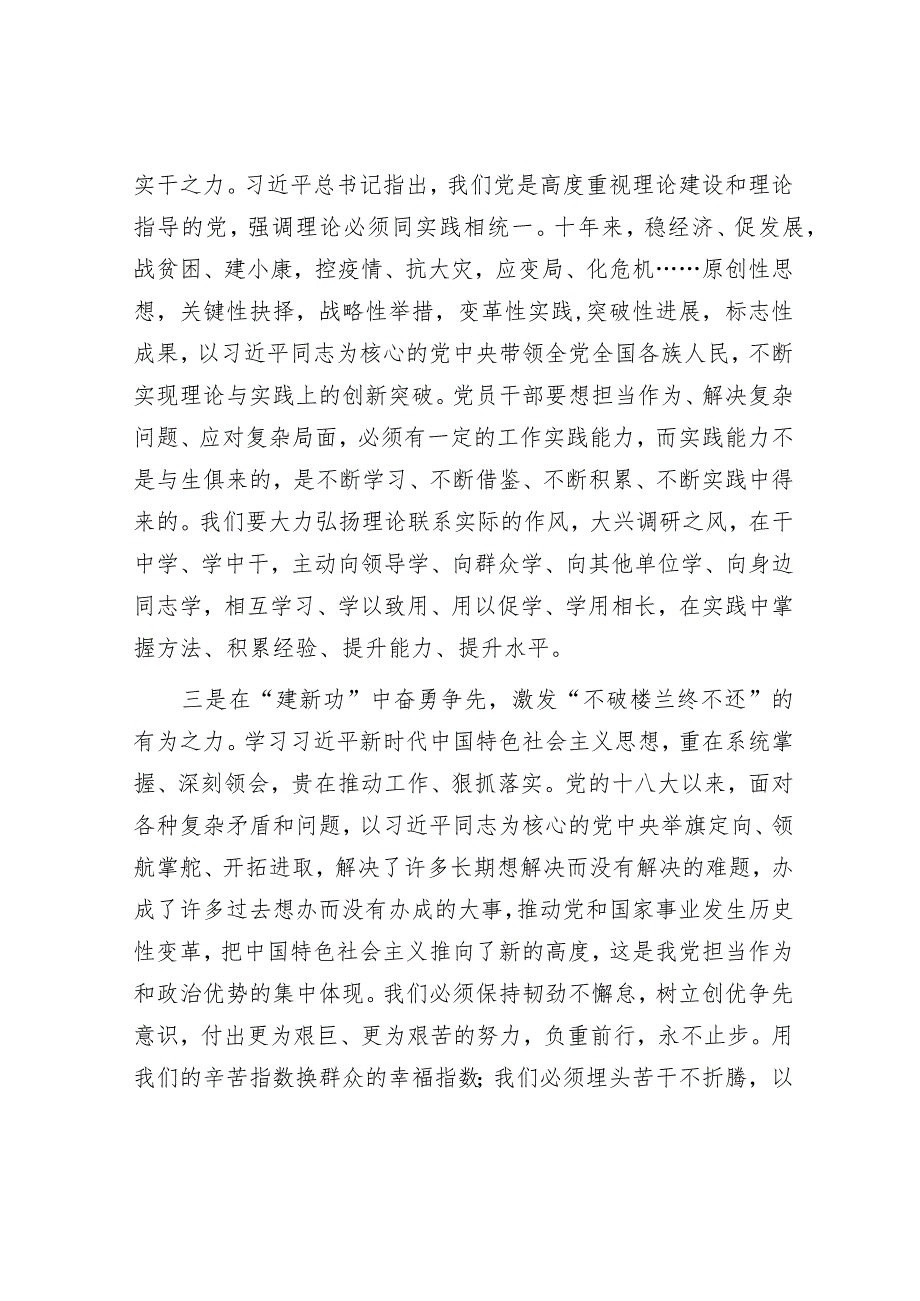 实干之力。习近平总书记指出，我们党是高度重视理论建设和理论
指导的党，强调理论必须同实践相统一。十年来，稳经济、促发展，
战贫困、建小康，控疫情、抗大灾，应变局、化危机……原创性思
想，关键性抉择，战略性举措，变革性实践,突破性进展，标志性
成果，以习近平同志为核心的党中央带领全党全国各族人民，不断
实现理论与实践上的创新突破。党员干部要想担当作为、解决复杂
问题、应对复杂局面，必须有一定的工作实践能力，而实践能力不
是与生俱来的，是不断学习、不断借鉴、不断积累、不断实践中得
来的。我们要大力弘扬理论联系实际的作风，大兴调研之风，在干
中学、学中干，主动向领导学、向群众学、向其他单位学、向身边
同志学，相互学习、学以致用、用以促学、学用相长，在实践中掌
握方法、积累经验、提升能力、提升水平。
三是在“建新功”中奋勇争先，激发“不破楼兰终不还”的
有为之力。学习习近平新时代中国特色社会主义思想，重在系统掌
握、深刻领会，贵在推动工作、狠抓落实。党的十八大以来，面对
各种复杂矛盾和问题，以习近平同志为核心的党中央举旗定向、领
航掌舵、开拓进取，解决了许多长期想解决而没有解决的难题，办
成了许多过去想办而没有办成的大事，推动党和国家事业发生历史
性变革，把中国特色社会主义推向了新的高度，这是我党担当作为
和政治优势的集中体现。我们必须保持韧劲不懈怠，树立创优争先
意识，付出更为艰巨、更为艰苦的努力，负重前行，永不止步。用
我们的辛苦指数换群众的幸福指数;我们必须埋头苦干不折腾，以